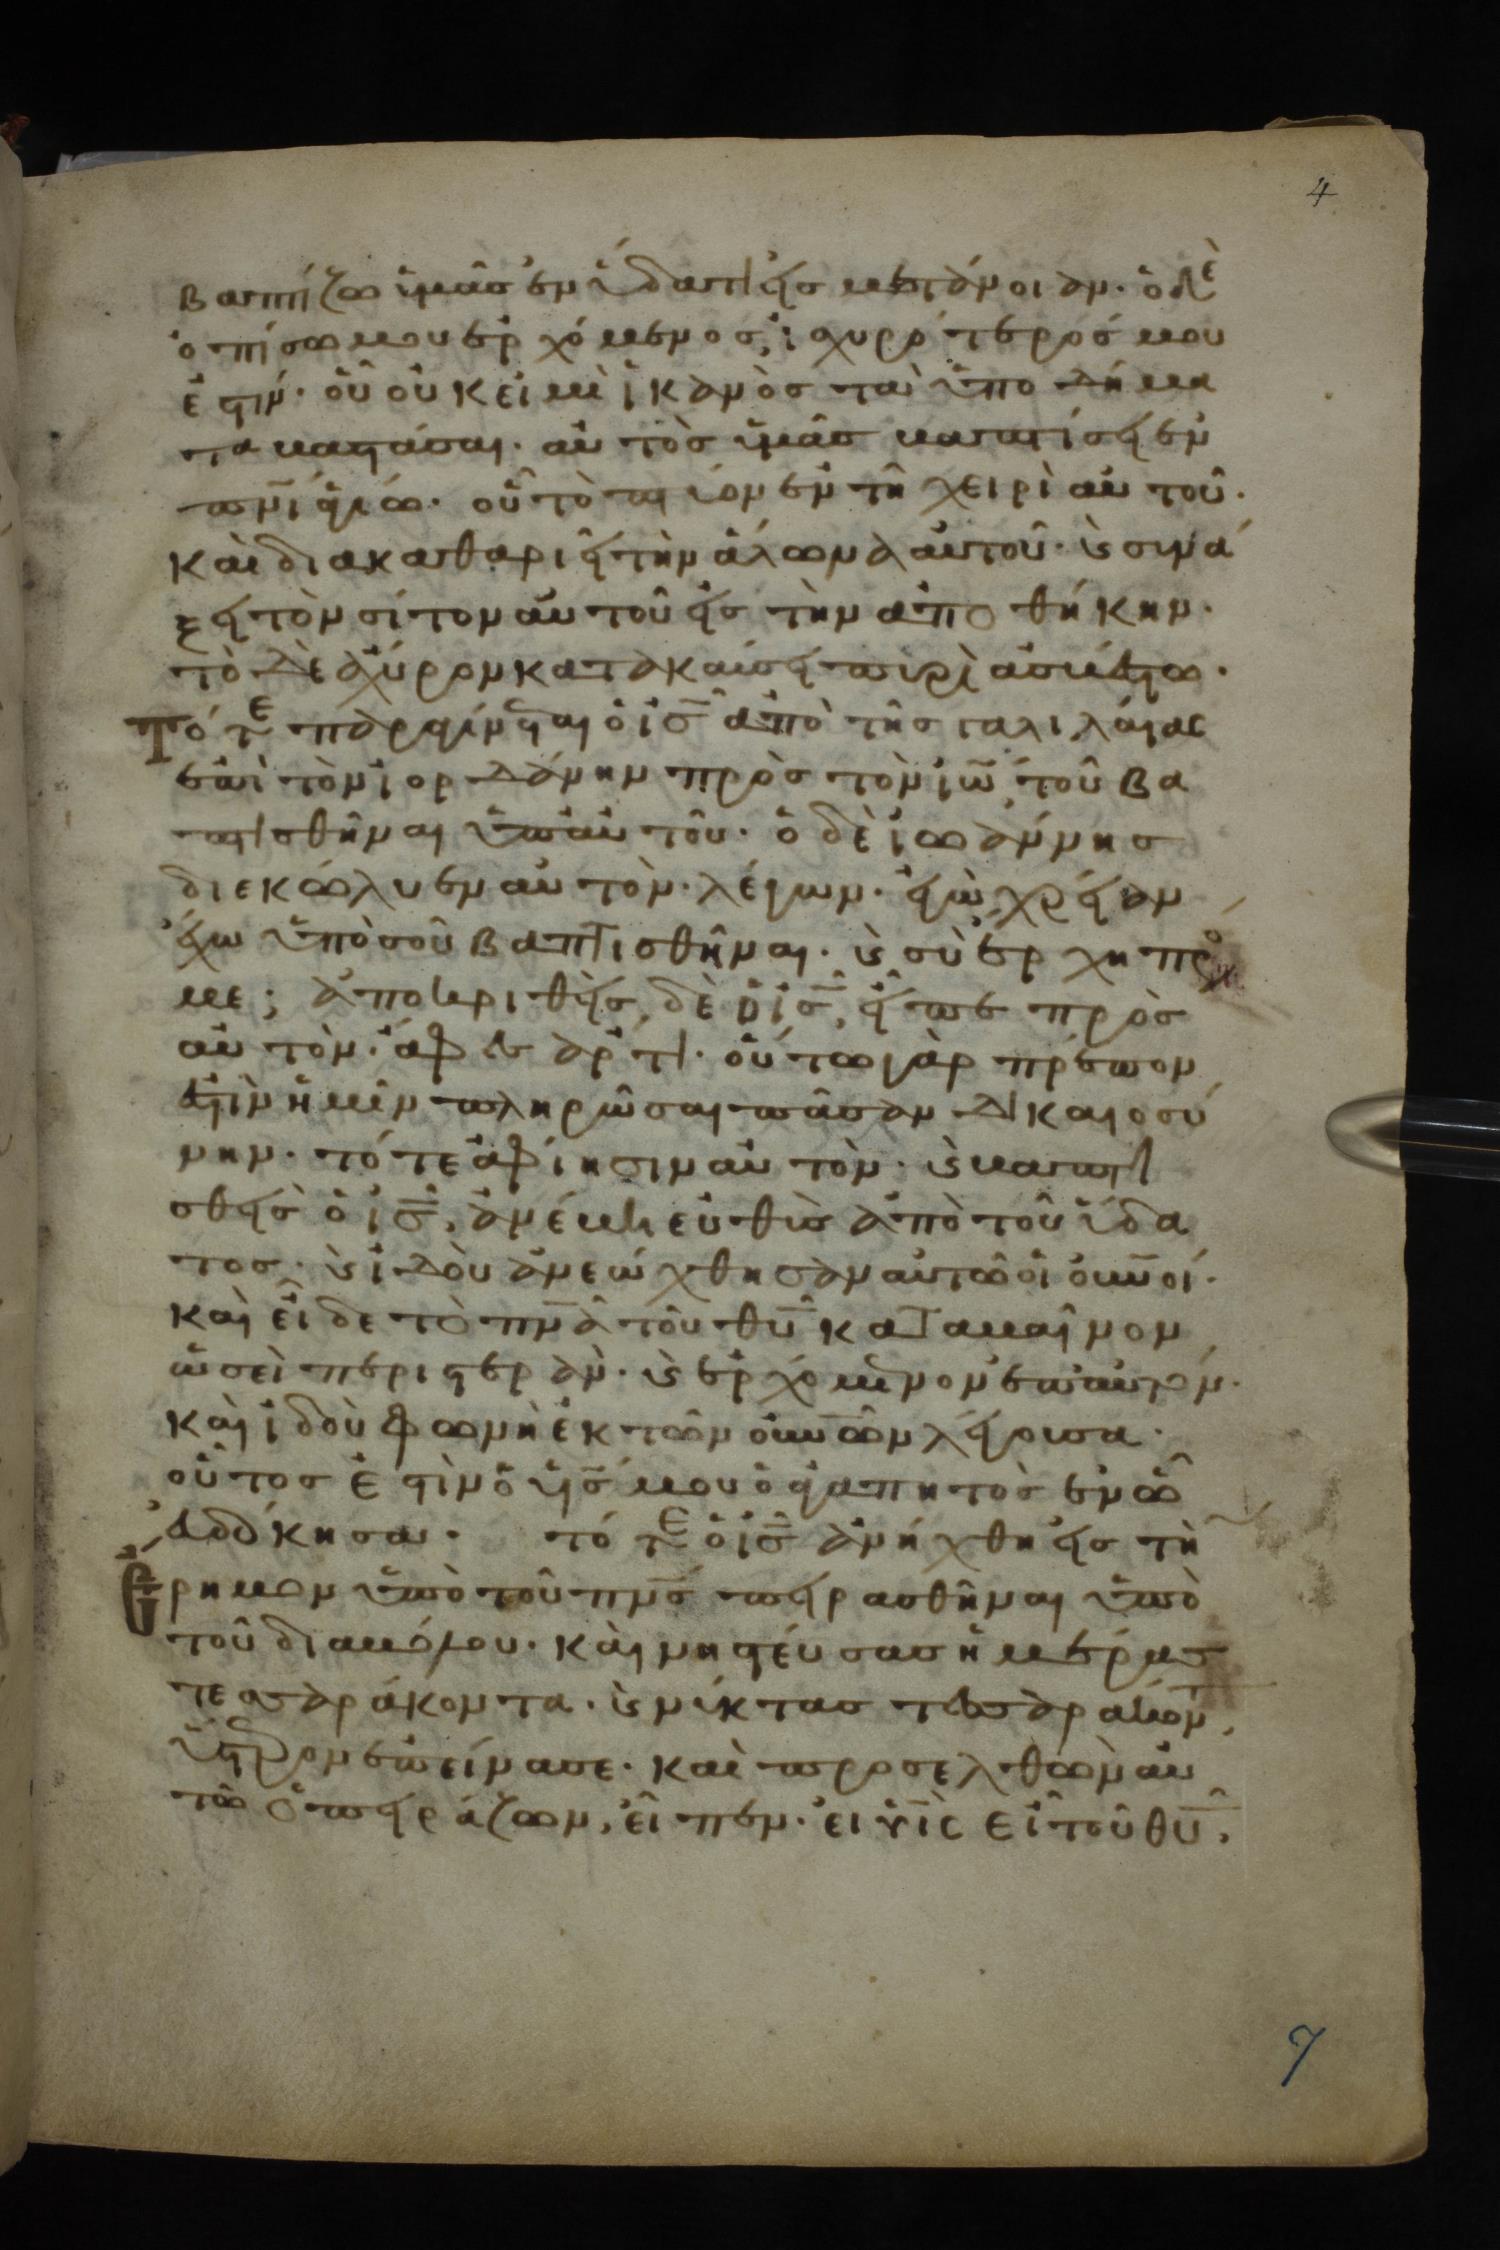 4
βαπτίζω ὑμᾶς ἐν ὕδατι εἰς μετάνοιαν· ὁ δὲ
ὀπίσω μου ἐρχόμενος, ἰσχυρότερός μου
ἐστίν· οὗ οὐκ εἰμὶ ἱκανὸς τὰ ὑποδήμα
τα βαστάσαι· αὐτὸς ὑμᾶς βαπτίσει ἐν
πν̅ι ἁγίω· οὗ τὸ πτύον ἐν τῆ χειρὶ αὐτοῦ·
καὶ διακαθαριεῖ τὴν ἅλωνα αὐτοῦ· ϗ συνά
ξει τὸν σίτον αὐτοῦ εἰς τὴν ἀποθήκην·
τὸ δὲ ἄχυρον κατακαύσει πυρὶ ἀσβέστω·
Τότε παραγίνεται ὁ ις̅ ἀπὸ τῆς γαλιλαίας
ἐπὶ τὸν ἰορδάνην πρὸς τὸν ἰω̅, τοῦ βα
πτισθῆναι ὑπ' αὐτοῦ· ὁ δὲ ἰωάννης
διεκώλυεν αὐτὸν· λέγων· ἐγὼ χρείαν
ἔχω ὑπὸ σοῦ βαπτισθῆναι· ϗ σὺ ἔρχη πρό
με; ἀποκριθεὶς δὲ ὁ ις̅, εἶπε πρὸς
αὐτὸν· ἄφες ἄρτι· οὕτω γὰρ πρέπον
ἐστὶν ἡμῖν πληρῶσαι πᾶσαν δικαιοσύ
νην· τότε ἀφίησιν αὐτὸν· ϗ βαπτι
σθεὶς ὁ ις̅, ἀνέβη εὐθὺς ἀπὸ τοῦ ὕδα
τος· ϗ ἰδοὺ ἀνεώχθησαν αὐτῶ οἱ οὐν̅οί·
καὶ εἶδε τὸ πν̅α τοῦ θυ̅ καταβαῖνον
ὡσεὶ περιστερὰν· ϗ ἐρχόμενον ἐπ' αὐτόν·
καὶ ἰδοὺ φωνὴ ἐκ τῶν οὐν̅ῶν λέγουσα·
οὗτος ἐστὶν ὁ υἱς̅ μου ὁ ἀγαπητὸς ἐν ῶ
εὐδόκησα· τότε ὁ ις̅ ἀνήχθη εἰς τὴ
Ἔρημον ὑπὸ τοῦ πν̅ς πειρασθῆναι ὑπὸ
τοῦ διαβόλου· καὶ νηστεύσας ἡμέρας
τεσσαράκοντα· ϗ νύκτας τεσσαράκοντ̅,
ὕστερον ἐπείνασε· καὶ προσελθὼν αὐ
τῶ ὁ πειράζων, εἶπεν· εἰ υι̅ς εἶ τοῦ θυ̅,
7